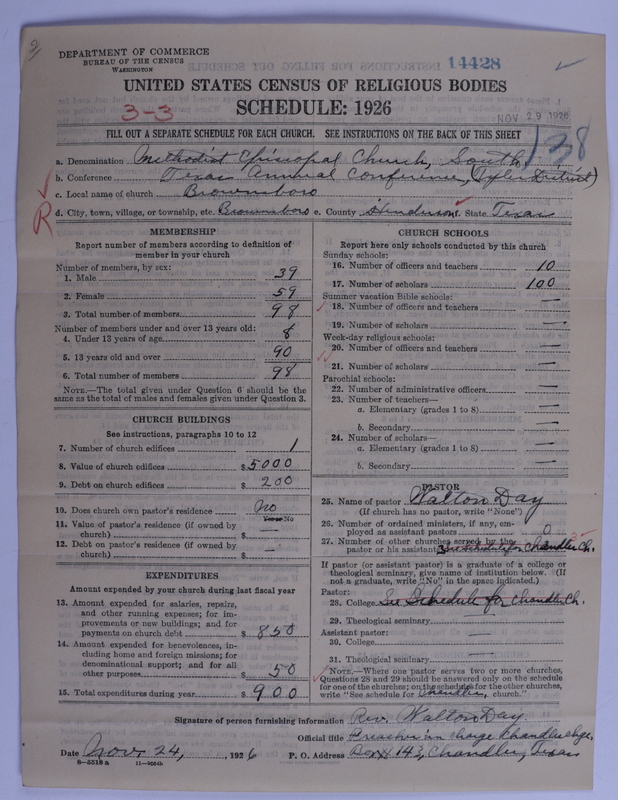 DEPARTMENT OF COMMERCE
BUREAU OF THE CENSUS
WASHINGTON
14428
UNITED STATES CENSUS OF RELIGIOUS BODIES
SCHEDULE: 1926
3-3
NOV 29 1926
138
FILL OUT A SEPARATE SCHEDULE FOR EACH CHURCH. SEE INSTRUCTIONS ON THE BACK OF THIS SHEET
a. Denomination Methodist Episcopal Church, South
b. Conference Texas Annual Conference, (Tyler District)
c. Local name of church Brownsboro
R
d. City, town, village, or township, etc. Brownsboro e. County Henderson f. State Texas
MEMBERSHIP
Report number of members according to definition of
member in your church
Number of members, by sex:
1. Male 39
2. Female 59
3. Total number of members 98
Number of members under and over 13 years old:
4. Under 13 years of age 8
5. 13 years old and over 90
6. Total number of members 98
NOTE.—The total given under Question 6 should be the
same as the total of males and females given under Question 3.
CHURCH BUILDINGS
See instructions, paragraphs 10 to 12
7. Number of church edifices 1
8. Value of church edifices $ 5000
9. Debt on church edifices $ 200
10. Does church own pastor's residence No
Yes or No
11. Value of pastor's residence (if owned by
church) $ —
12. Debt on pastor's residence (if owned by
church) $ —
EXPENDITURES
Amount expended by your church during last fiscal year
13. Amount expended for salaries, repairs,
and other running expenses; for im-
provements or new buildings; and for
payments on church debt $ 850
14. Amount expended for benevolences, in-
cluding home and foreign missions; for
denominational support; and for all
other purposes $ 50
15. Total expenditures during year $ 900
CHURCH SCHOOLS
Report here only schools conducted by this church
Sunday schools:
16. Number of officers and teachers 10
17. Number of scholars 100
Summer vacation Bible schools:
18. Number of officers and teachers —
19. Number of scholars —
Week-day religious schools:
20. Number of officers and teachers —
21. Number of scholars —
Parochial schools:
22. Number of administrative officers —
23. Number of teachers—
a. Elementary (grades 1 to 8) —
b. Secondary —
24. Number of scholars—
a. Elementary (grades 1 to 8) —
b. Secondary —
PASTOR
25. Name of pastor Walton Day
(If church has no pastor, write "None")
26. Number of ordained ministers, if any, em-
ployed as assistant pastors 0
27. Number of other churches served by the
pastor or his assistant See schedule for Chandler Ch.
If pastor (or assistant pastor) is a graduate of a college or
theological seminary, give name of institution below. (If
not a graduate, write "No" in the space indicated.)
Pastor:
28. College See Schedule for Chandler Ch.
29. Theological seminary —
Assistant pastor:
30. College —
31. Theological seminary —
NOTE.—Where one pastor serves two or more churches,
Questions 28 and 29 should be answered only on the schedule
for one of the churches; on the schedules for the other churches,
write "See schedule for Chandler, church."
Signature of person furnishing information Rev. Walton Day
Official title Preacher in charge Chandler chge.
Date Nov. 24, 1926 P. O. Address Box 143, Chandler, Texas
8-5318 a 11-9054b